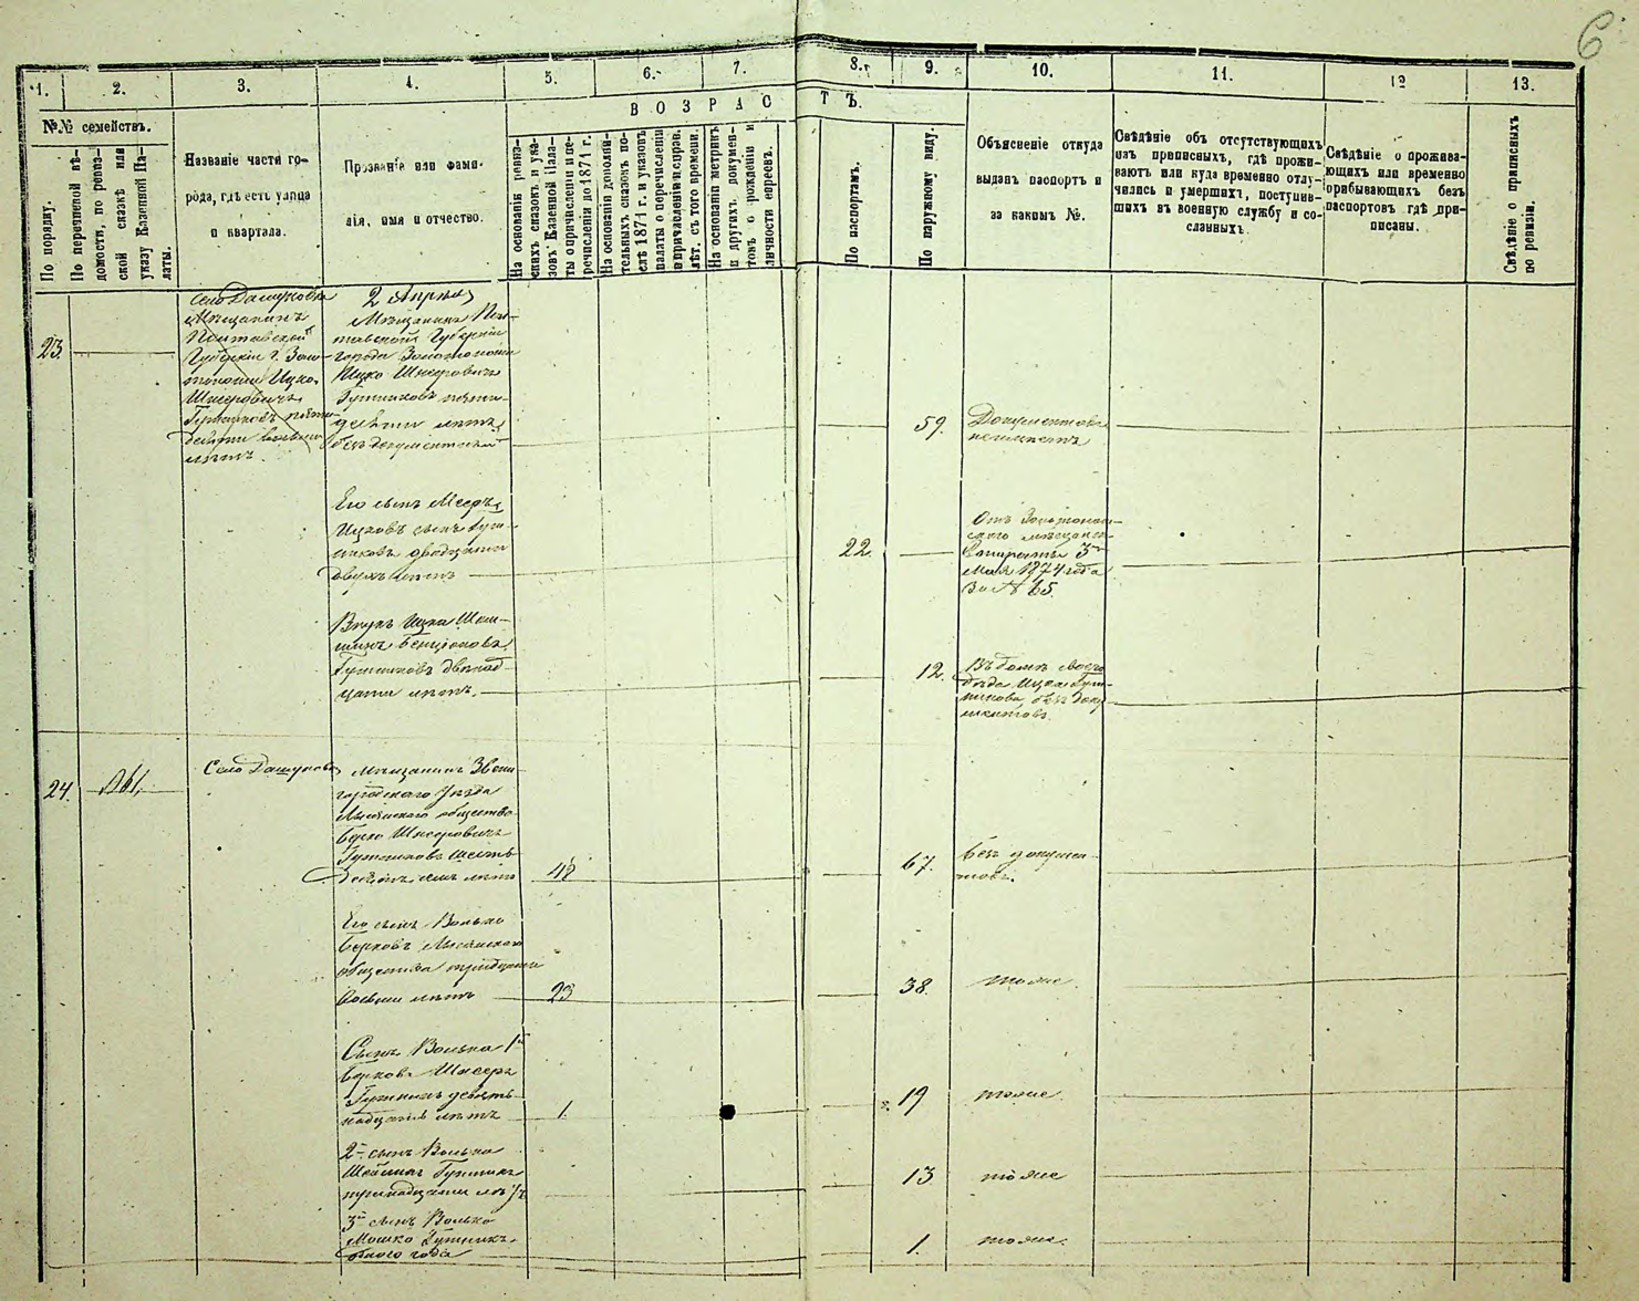 6
1.
2.
3.
4.
5.
6.
7.
8.
9.
10.
11.
12
13.
В О З Р А С Т Ъ.
№№ семействъ.
По порядку.
По переписной вѣ-
домости, по ревиз-
ской сказкѣ или
указу Казенной Па-
латы.
Названіе части го-
рода, гдѣ есть улица
и квартала.
Прозваніе или фами-
лія, имя и отчество.
На основаніи ревиз-
скихъ сказокъ и ука-
зовъ Казенной Пала-
ты о причисленіи и пе-
речисленіи до 1871 г.
На основаніи дополни-
тельныхъ сказокъ по-
слѣ 1871 г. и указовъ
палаты о перечисленіи
и причисленіи и справ.
лѣт. съ того времени.
На основаніи метрикъ
и другихъ докумен-
товъ о рожденіи и
личности евреевъ.
По паспортамъ.
По наружному виду.
Объясненіе откуда
выданъ паспортъ и
за какимъ №.
Свѣдѣніе объ отсутствующихъ
изъ приписныхъ, гдѣ прожи-
ваютъ или куда временно отлу-
чились и умершихъ, поступив-
шихъ въ военную службу и со-
сланныхъ.
Свѣдѣніе о прожива-
ющихъ или временно
прибывающихъ безъ
паспортовъ гдѣ при-
писаны.
Свѣдѣніе о приписныхъ
по ревизіи.
23.
Село Дашуковка
Мѣщанинъ
Полтавской
Губерніи г. Золо-
тоноши Ицко
Шнеровичъ
Гутниковъ пяти-
десяти
лѣтъ.
2 Апрѣля
Мѣщанинъ Пол-
тавской Губерніи
города Золотоноши
Ицко Шнеровичъ
Гутниковъ пяти-
десяти лѣтъ,
безъ документовъ
59.
Документовъ
неимѣетъ
Его сынъ Мееръ
Ицковъ сынъ Гут-
никовъ двадцати
двухъ лѣтъ
22.
Отъ Золотонош-
ского мѣщанск.
3го
Мая 1874 года
За № 65.
Внукъ Ицка Шли-
Бенціоновъ
Гутниковъ двѣнад-
цати лѣтъ.
12.
Въ домѣ своего
дѣда Ицка Гут-
никова, безъ доку-
ментовъ.
24.
361.
Село Дашуковка
Мѣщанинъ Звени-
городского Уѣзда
Лысянского общества
Берко Шнеровичъ
Гутниковъ шесть-
десятъ семь лѣтъ
48
67.
Безъ докумен-
товъ.
Его сынъ Волько
Берковъ Лысянского
общества тридцати
восьми лѣтъ
23
38.
тоже.
Сынъ Волька 1й
Берковъ Шнееръ
Гутникъ девять-
надцать лѣтъ
1.
19
тоже.
2й сынъ Волька
Гутникъ
тринадцати лѣтъ
13
тоже
3й сынъ Волько
Мошко Гутникъ
одного года
1.
тоже.